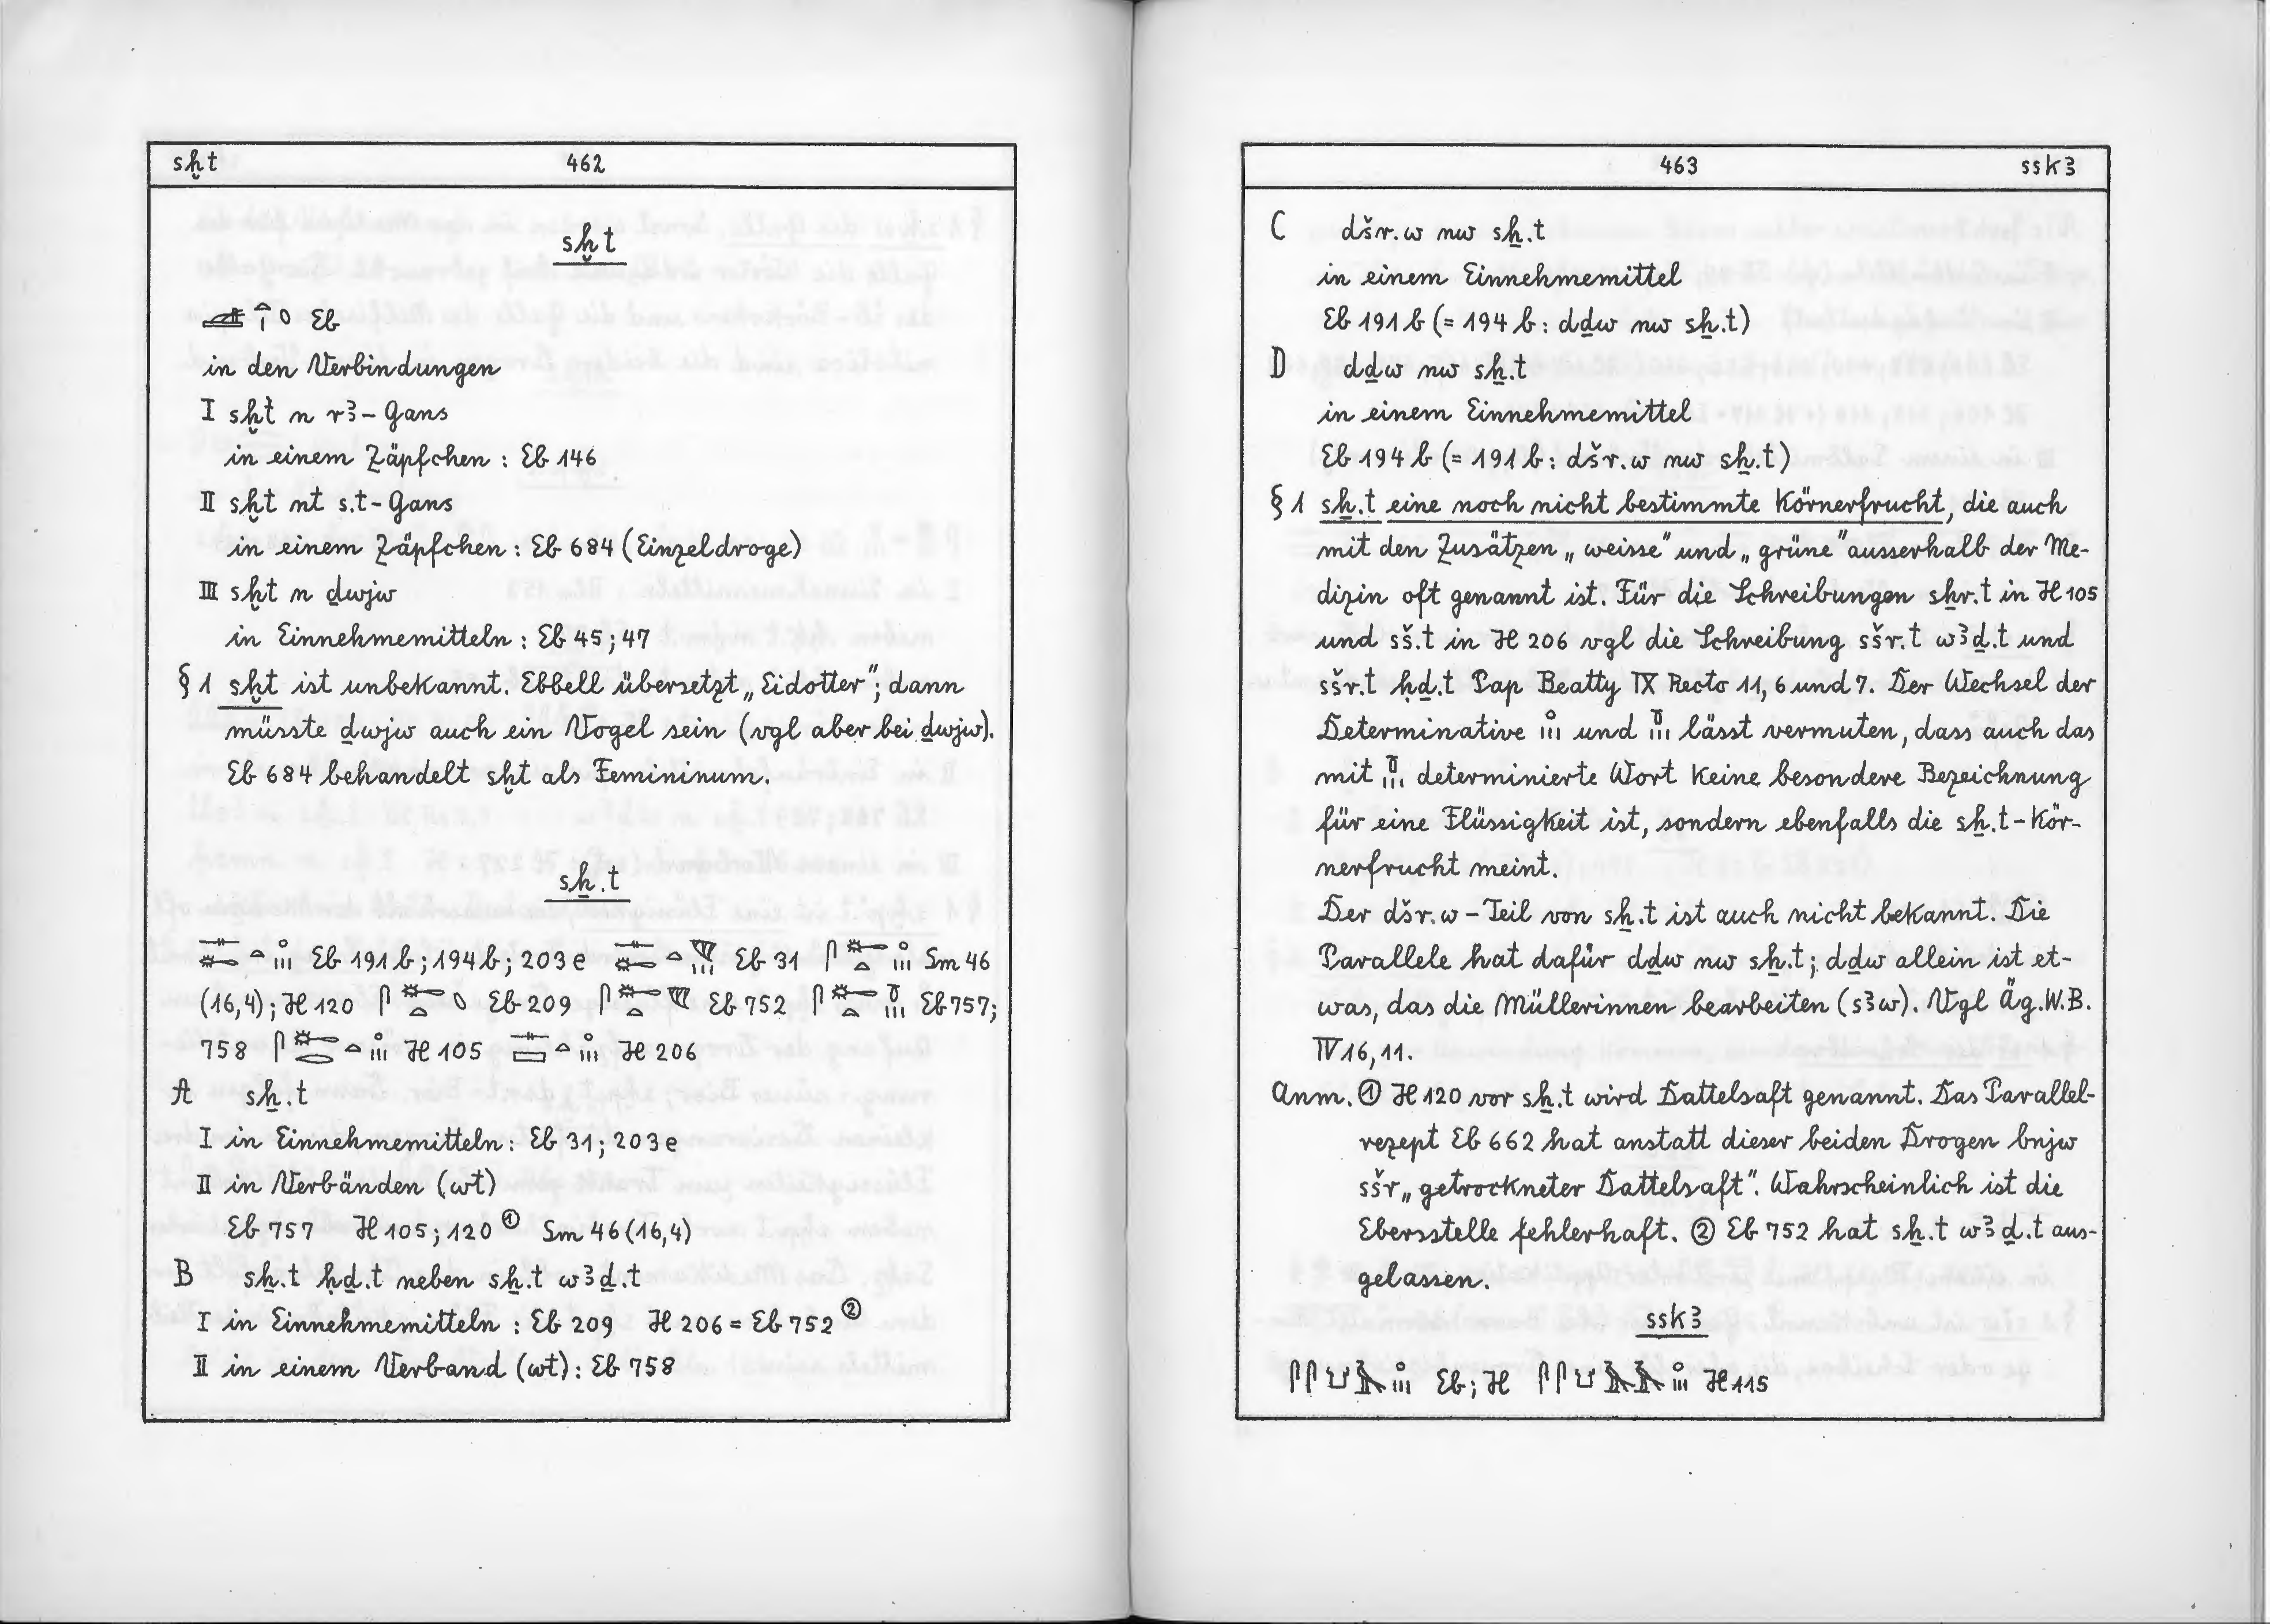 sḫt 462
sḫt
Eb
in den Verbindungen
I sḫt n r3-Gans
in einem Zäpfchen : Eb 146
II sḫt nt s.t-Gans
in einem Zäpfchen : Eb 684 (Einzeldroge)
III sḫt n ḏwjw
in Einnehmemitteln : Eb 45; 47
§ 1 sḫt ist unbekannt. Ebbell übersetzt „Eidotter"; dann
müsste ḏwjw auch ein Vogel sein (vgl aber bei ḏwjw).
Eb 684 behandelt sḫt als Femininum.
sẖ.t
Eb 191b; 194b; 203e Eb 31 Sm 46
(16,4); H 120 Eb 209 Eb 752 Eb 757;
758 H 105 H 206
A sẖ.t
I in Einnehmemitteln: Eb 31; 203e
II in Verbänden (wt)
Eb 757 H 105; 120 ① Sm 46 (16,4)
B sẖ.t ḥḏ.t neben sẖ.t w3ḏ.t
I in Einnehmemitteln : Eb 209 H 206 = Eb 752 ②
II in einem Verband (wt): Eb 758
463 ssk3
C dšr.w nw sẖ.t
in einem Einnehmemittel
Eb 191b (= 194b: dḏw nw sẖ.t)
D dḏw nw sẖ.t
in einem Einnehmemittel
Eb 194b (= 191b: dšr.w nw sẖ.t)
§ 1 sẖ.t eine noch nicht bestimmte Körnerfrucht, die auch
mit den Zusätzen „weisse" und „grüne" ausserhalb der Me-
dizin oft genannt ist. Für die Schreibungen sẖr.t in H 105
und sš.t in H 206 vgl die Schreibung sšr.t w3ḏ.t und
sšr.t ḥḏ.t Pap Beatty IX Recto 11, 6 und 7. Der Wechsel der
Determinative und lässt vermuten, dass auch das
mit determinierte Wort keine besondere Bezeichnung
für eine Flüssigkeit ist, sondern ebenfalls die sẖ.t-Kör-
nerfrucht meint.
Der dšr.w-Teil von sẖ.t ist auch nicht bekannt. Die
Parallele hat dafür dḏw nw sẖ.t; dḏw allein ist et-
was, das die Müllerinnen bearbeiten (s3w). Vgl Äg.W.B.
IV 16, 11.
Anm. ① H 120 vor sẖ.t wird Dattelsaft genannt. Das Parallel-
rezept Eb 662 hat anstatt dieser beiden Drogen bnjw
sšr „getrockneter Dattelsaft". Wahrscheinlich ist die
Ebersstelle fehlerhaft. ② Eb 752 hat sẖ.t w3ḏ.t aus-
gelassen.
ssk3
Eb; H H 115